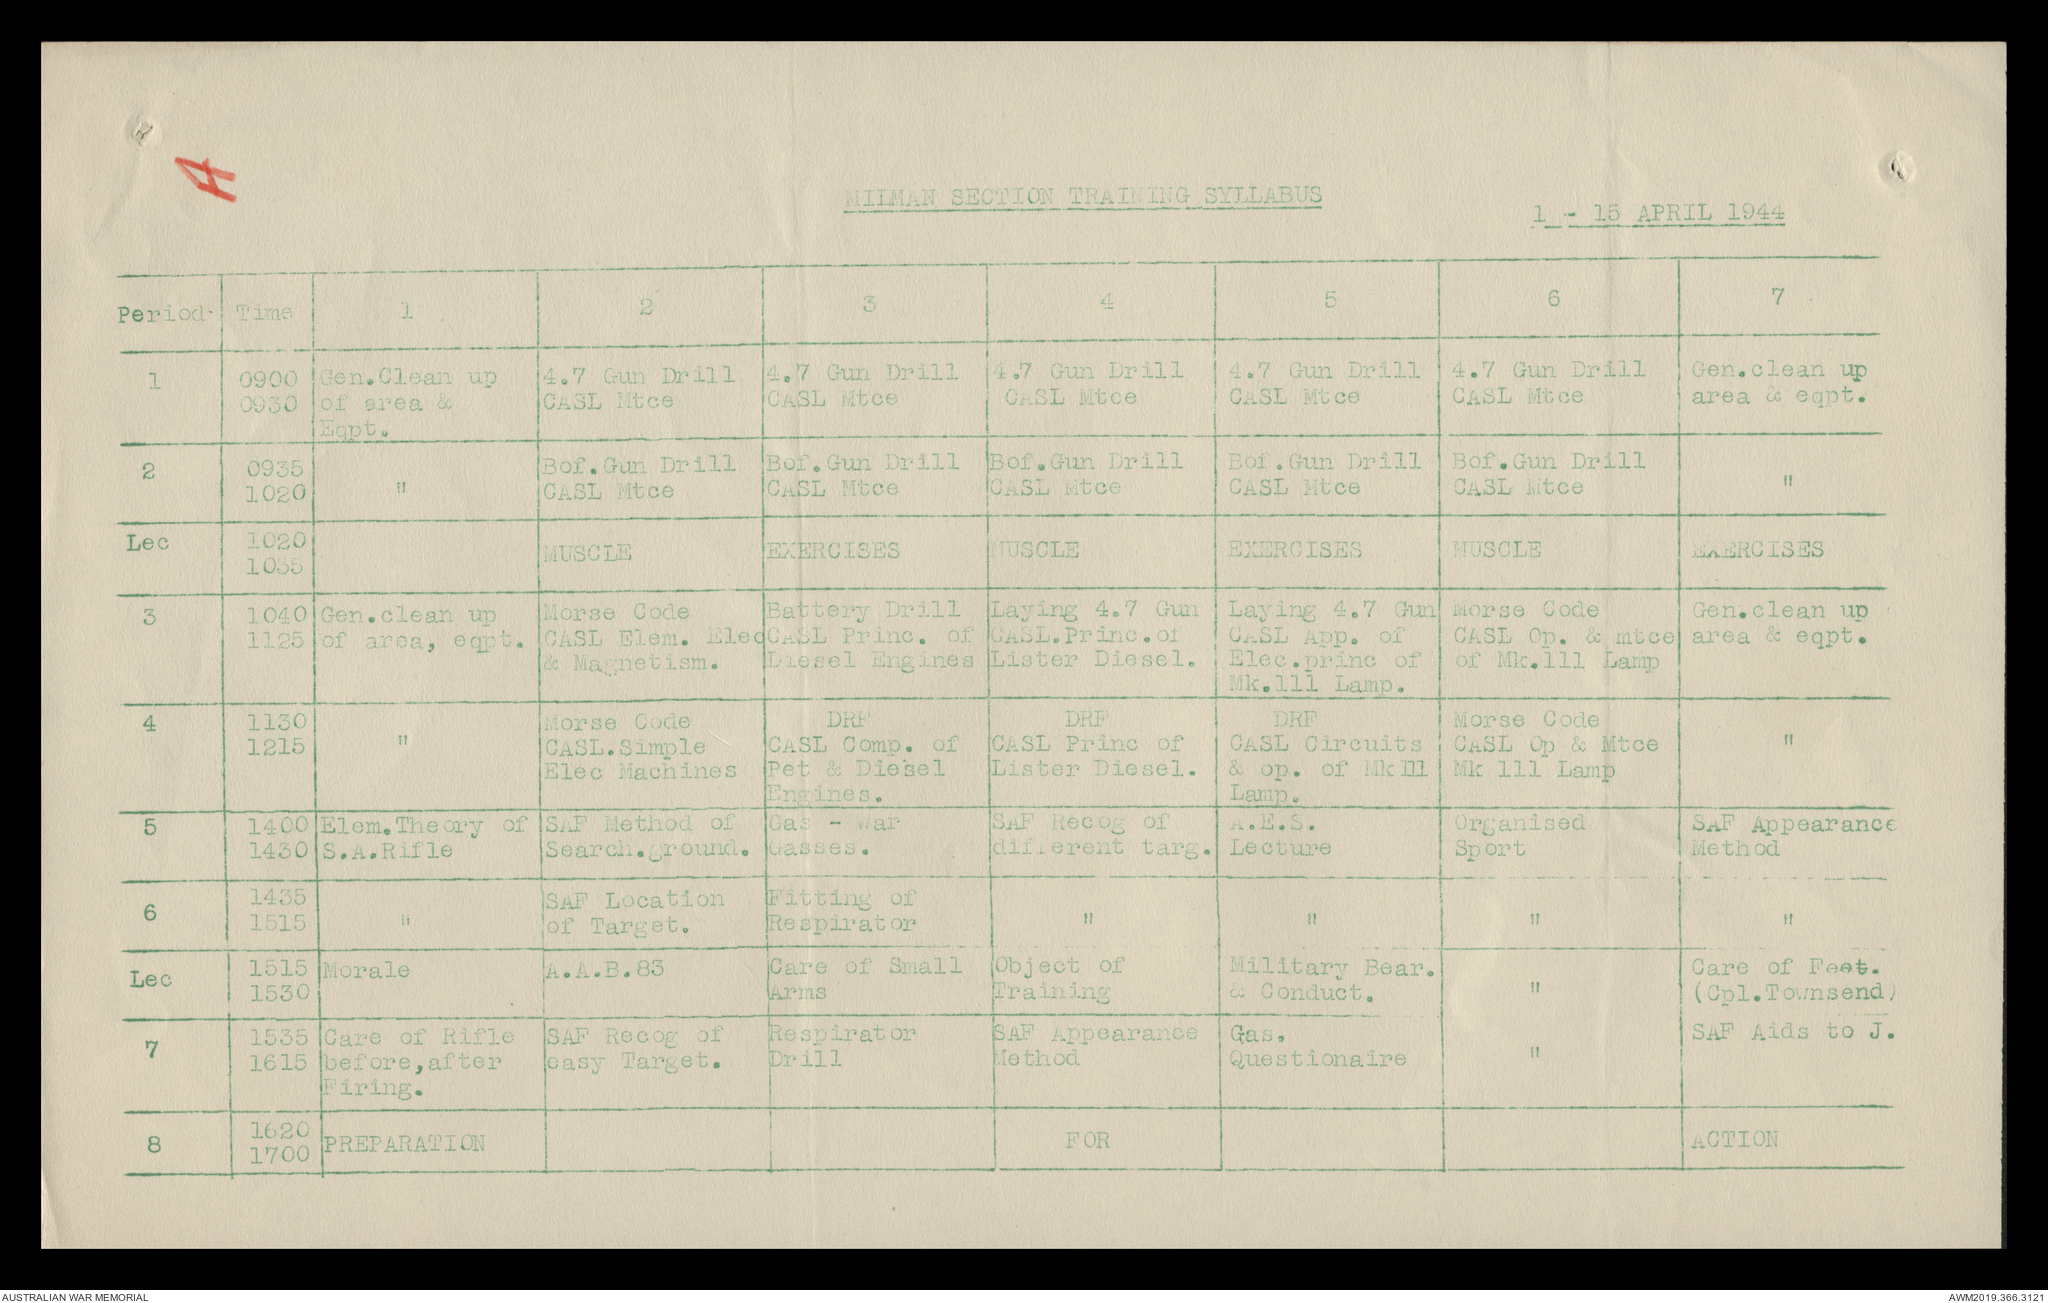 A
MILMAN SECTION TRAINING SYLLABUS
1 - 15 APRIL 1944
Period Time 1 2 3 4 5 6 7
1 0900 Gen.Clean up 4.7 Gun Drill 4.7 Gun Drill 4.7 Gun Drill 4.7 Gun Drill 4.7 Gun Drill Gen.clean up
0930 of area & CASL Mtce CASL Mtce CASL Mtce CASL Mtce CASL Mtce area & eqpt.
Eqpt.
2 0935 Bof.Gun Drill Bof.Gun Drill Bof.Gun Drill Bof.Gun Drill Bof.Gun Drill
1020 " CASL Mtce CASL Mtce CASL Mtce CASL Mtce CASL Mtce "
Lec 1020 MUSCLE EXERCISES MUSCLE EXERCISES MUSCLE EXERCISES
1035
3 1040 Gen.clean up Morse Code Battery Drill Laying 4.7 Gun Laying 4.7 Gun Morse Code Gen.clean up
1125 of area, eqpt. CASL Elem. Elec CASL Princ. of CASL.Princ.of CASL App. of CASL Op. & mtce area & eqpt.
& Magnetism. Diesel Engines Lister Diesel. Elec.princ of of Mk.lll Lamp
Mk.lll Lamp.
4 1130 Morse Code DRF DRF DRF Morse Code
1215 " CASL.Simple CASL Comp. of CASL Princ of CASL Circuits CASL Op & Mtce "
Elec Machines Pet & Diesel Lister Diesel. & op. of Mk lll Mk lll Lamp
Engines. Lamp.
5 1400 Elem.Theory of SAF Method of Gas - War SAF Recog of A.E.S. Organised SAF Appearance
1430 S.A.Rifle Search.ground. Gasses. different targ. Lecture Sport Method
6 1435 SAF Location Fitting of
1515 " of Target. Respirator " " " "
Lec 1515 Morale A.A.B.83 Care of Small Object of Military Bear. Care of Feet.
1530 Arms Training & Conduct. " (Cpl.Townsend)
7 1535 Care of Rifle SAF Recog of Respirator SAF Appearance Gas. SAF Aids to J.
1615 before,after easy Target. Drill Method Questionaire "
Firing.
8 1620 PREPARATION FOR ACTION
1700
AUSTRALIAN WAR MEMORIAL
AWM2019.366.3121